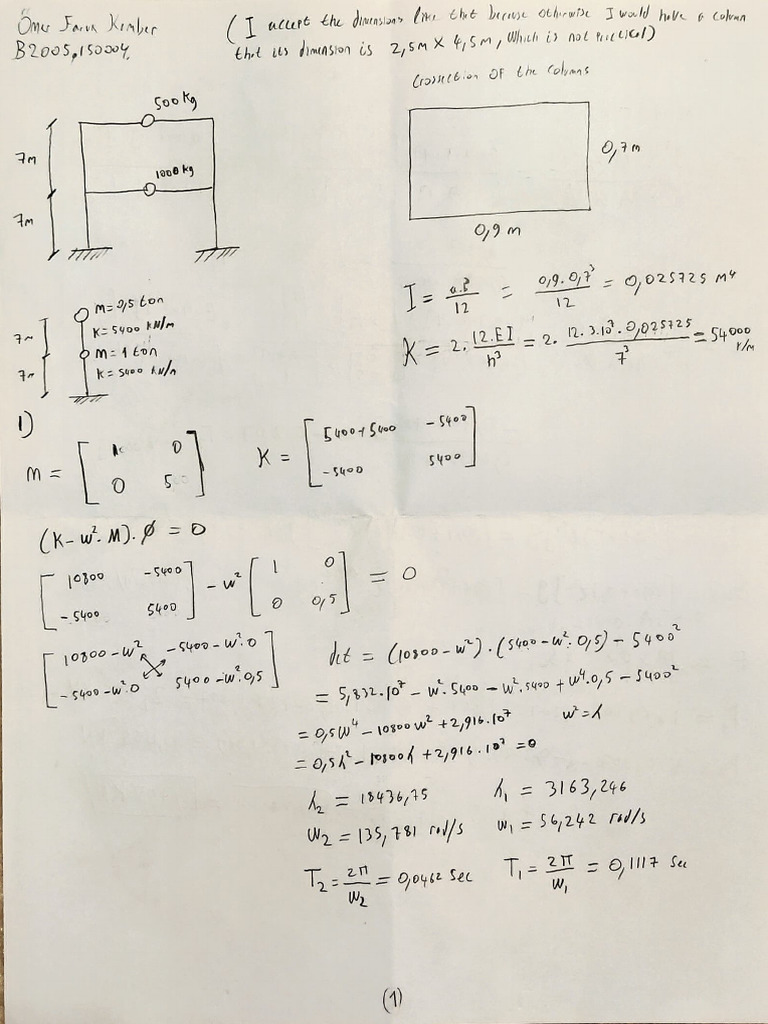 Ömer Faruk Kember
B2005.150004.
(I accept the dimensions like that because otherwise I would have a column
that its dimension is 2,5m x 4,5m, which is not practical)
Crossection OF the columns
500 Kg
7m
1000 Kg
7m
0,7 m
0,9 m
I = a.b³/12 = 0,9.0,7³/12 = 0,025725 m⁴
K = 2. 12.EI/h³ = 2. 12.3.10⁷.0,025725/7³ = 54000 K/M
m=0,5 ton
7m
K=5400 KN/m
m=1 ton
7m
K=5400 KN/m
1)
M = [ 1 0
0 5 ]
K = [ 5400+5400 -5400
-5400 5400 ]
(K-w².M).ø = 0
[ 10800 -5400
-5400 5400 ] - w² [ 1 0
0 0,5 ] = 0
[ 10800-w² -5400-w².0
-5400-w².0 5400-w².0,5 ]
det = (10800-w²).(5400-w².0,5)-5400²
= 5,832.10⁷-w².5400-w².5400+w⁴.0,5-5400²
= 0,5w⁴-10800w²+2,916.10⁷ w²=λ
= 0,5λ²-10800λ+2,916.10⁷=0
λ₂ = 18436,75 λ₁ = 3163,246
w₂ = 135,781 rad/s w₁ = 56,242 rad/s
T₂ = 2π/w₂ = 0,0462 sec T₁ = 2π/w₁ = 0,1117 sec
(1)